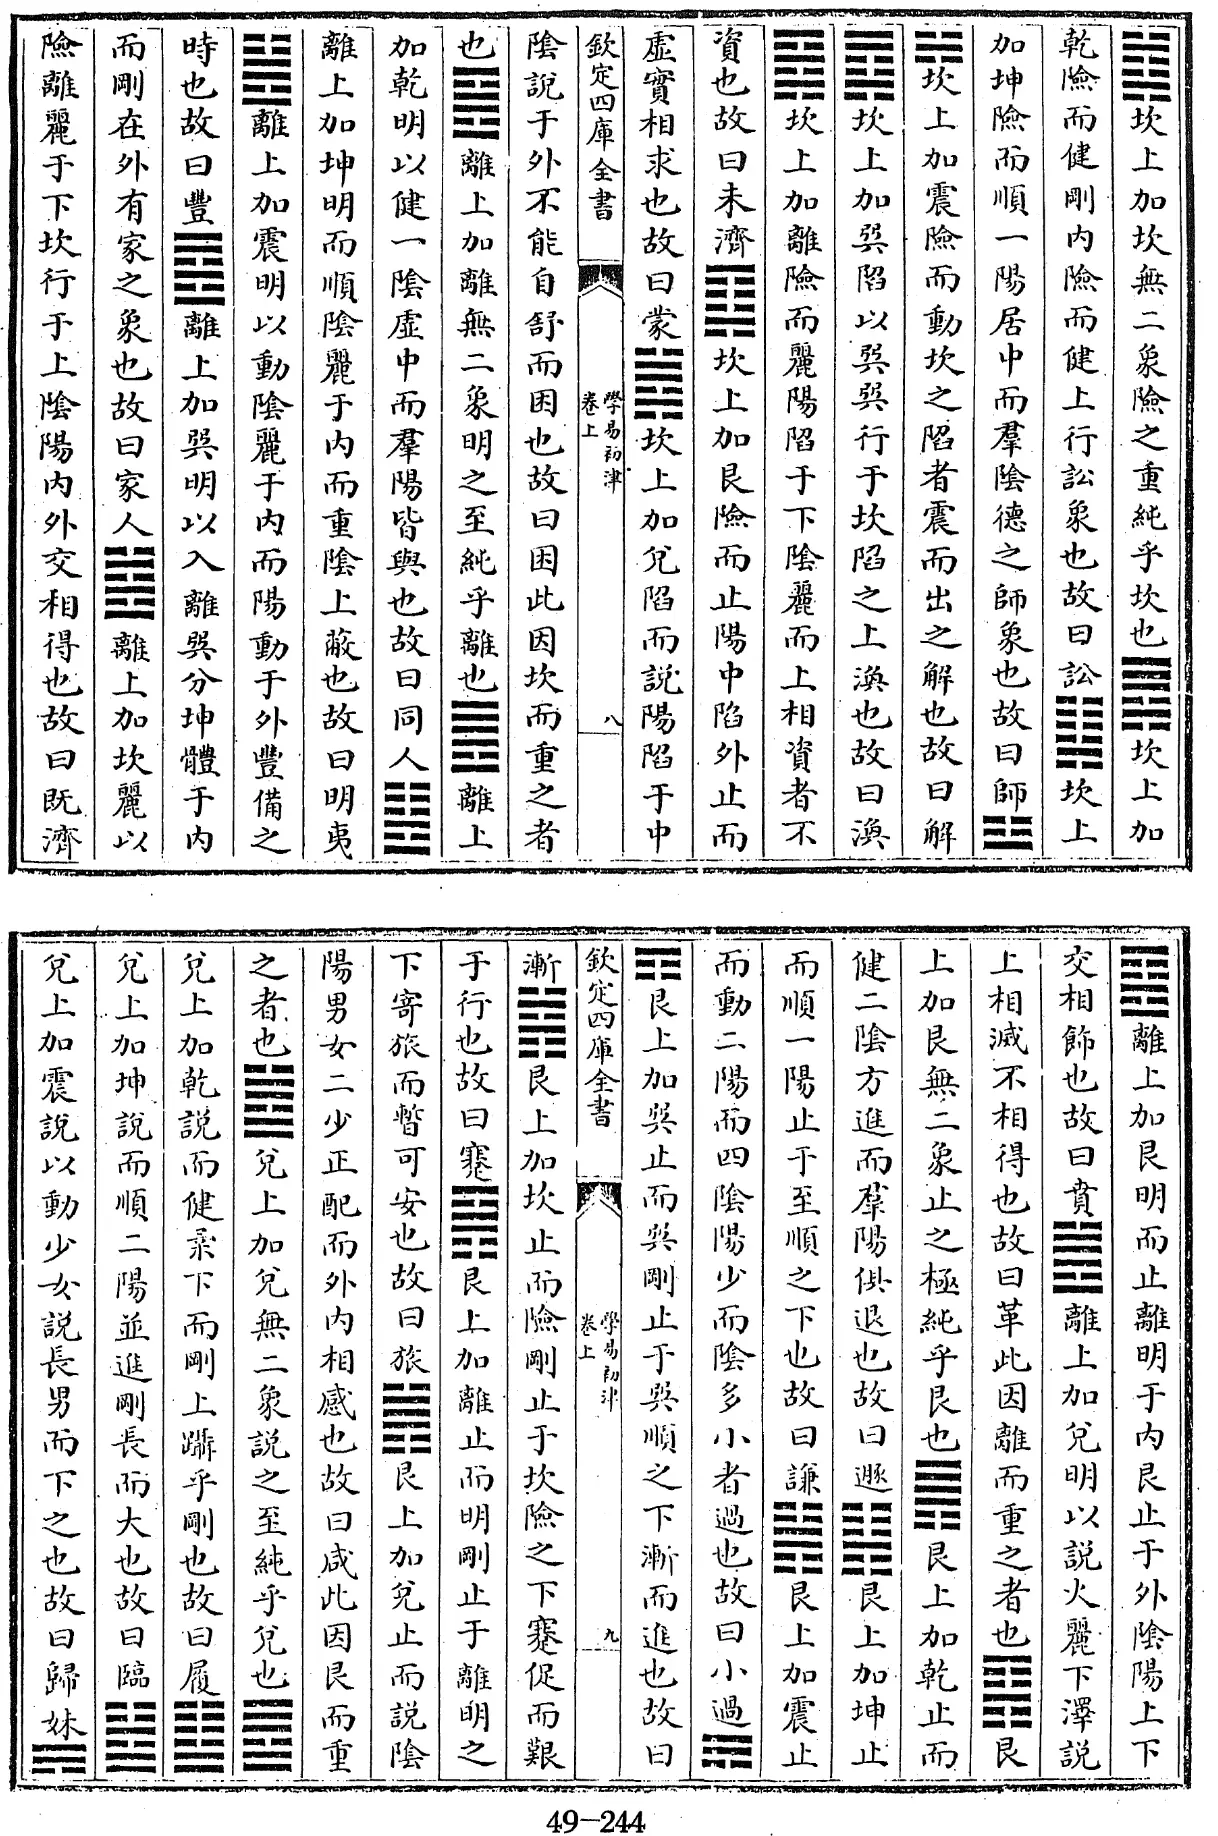 ䷜坎上加坎無二象險之重純乎坎也䷅坎上加
乾險而健剛内險而健上行訟象也故曰訟䷆坎上
加坤險而順一陽居中而羣陰德之師象也故曰師䷧
坎上加震險而動坎之陷者震而出之解也故曰解
䷺坎上加巽陷以巽巽行于坎陷之上渙也故曰渙
䷿坎上加離險而麗陽陷于下陰麗而上相資者不
資也故曰未濟䷃坎上加艮險而止陽中陷外止而
虛實相求也故曰蒙䷮坎上加兌陷而說陽陷于中
欽定四庫全書
學易初津
卷上
八
陰說于外不能自舒而困也故曰困此因坎而重之者
也䷝離上加離無二象明之至純乎離也䷌離上
加乾明以健一陰虛中而羣陽皆與也故曰同人䷣
離上加坤明而順陰麗于内而重陰上蔽也故曰明夷
䷶離上加震明以動陰麗于内而陽動于外豐備之
時也故曰豐䷤離上加巽明以入離巽分坤體于内
而剛在外有家之象也故曰家人䷾離上加坎麗以
險離麗于下坎行于上陰陽内外交相得也故曰既濟
䷕離上加艮明而止離明于内艮止于外陰陽上下
交相飾也故曰賁䷰離上加兌明以説火麗下澤説
上相滅不相得也故曰革此因離而重之者也䷳艮
上加艮無二象止之極純乎艮也䷠艮上加乾止而
健二陰方進而羣陽俱退也故曰遯䷎艮上加坤止
而順一陽止于至順之下也故曰謙䷽艮上加震止
而動二陽而四陰陽少而陰多小者過也故曰小過䷴
艮上加巽止而巽剛止于巽順之下漸而進也故曰
欽定四庫全書
學易初津
卷上
九
漸䷦艮上加坎止而險剛止于坎險之下蹇促而艱
于行也故曰蹇䷷艮上加離止而明剛止于離明之
下寄旅而暫可安也故曰旅䷞艮上加兌止而説陰
陽男女二少正配而外内相感也故曰咸此因艮而重
之者也䷹兌上加兌無二象説之至純乎兌也䷉
兌上加乾説而健柔下而剛上躡乎剛也故曰履䷒
兌上加坤説而順二陽並進剛長而大也故曰臨䷵
兌上加震説以動少女説長男而下之也故曰歸妹䷼
49-244